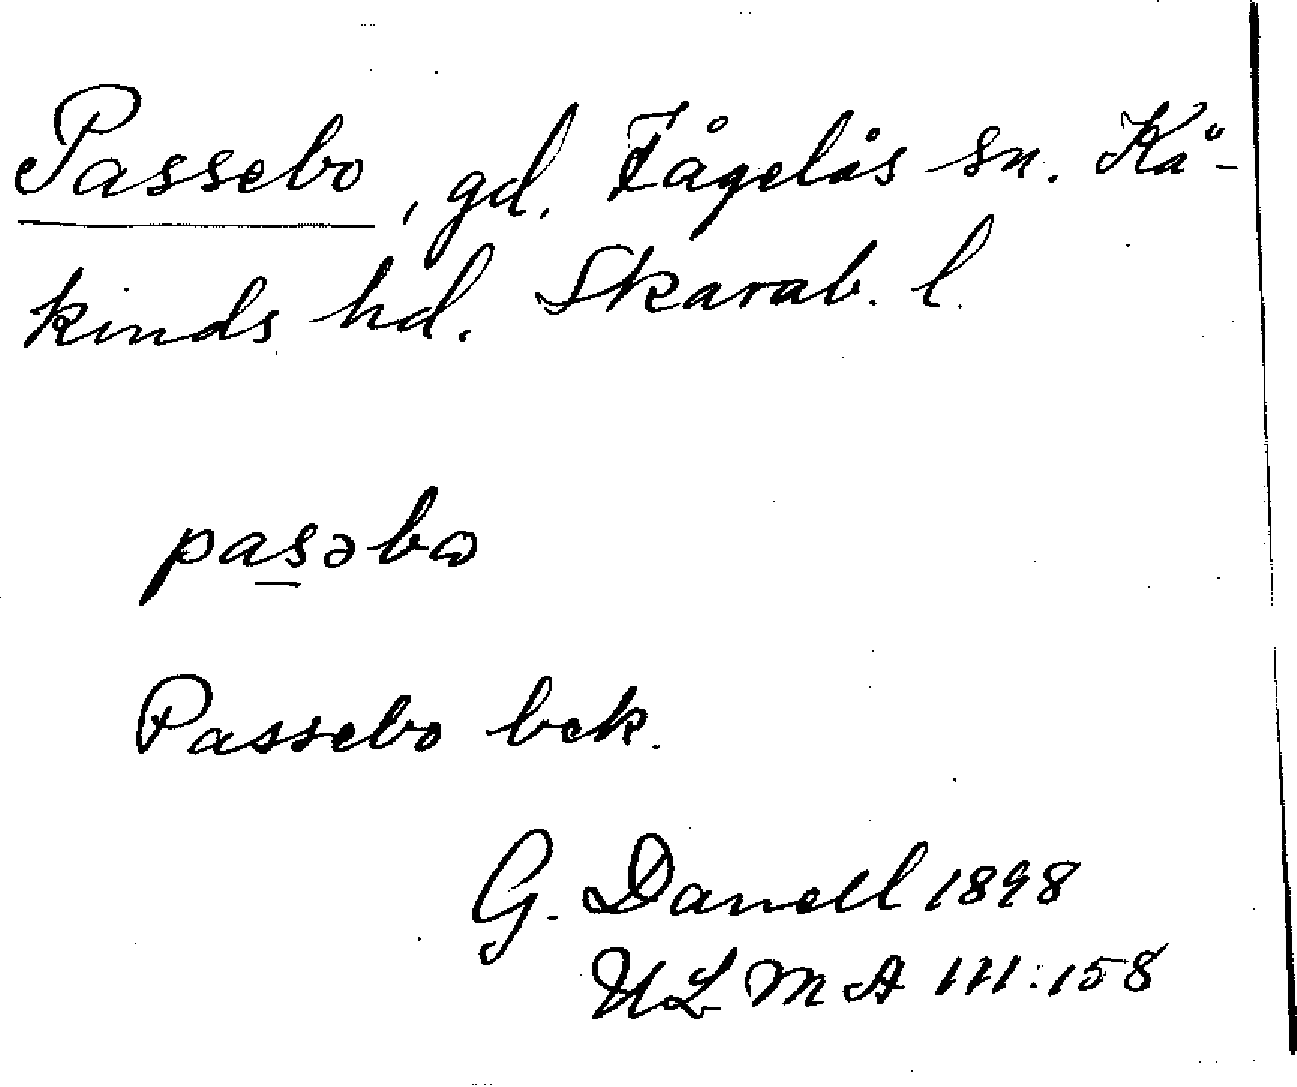 Passebo, gd. Fågelås sn. Kå-
kinds hd. Skarab. l.
pasəbω
Passebo bek.
G. Danell 1898
ULMA 111:158